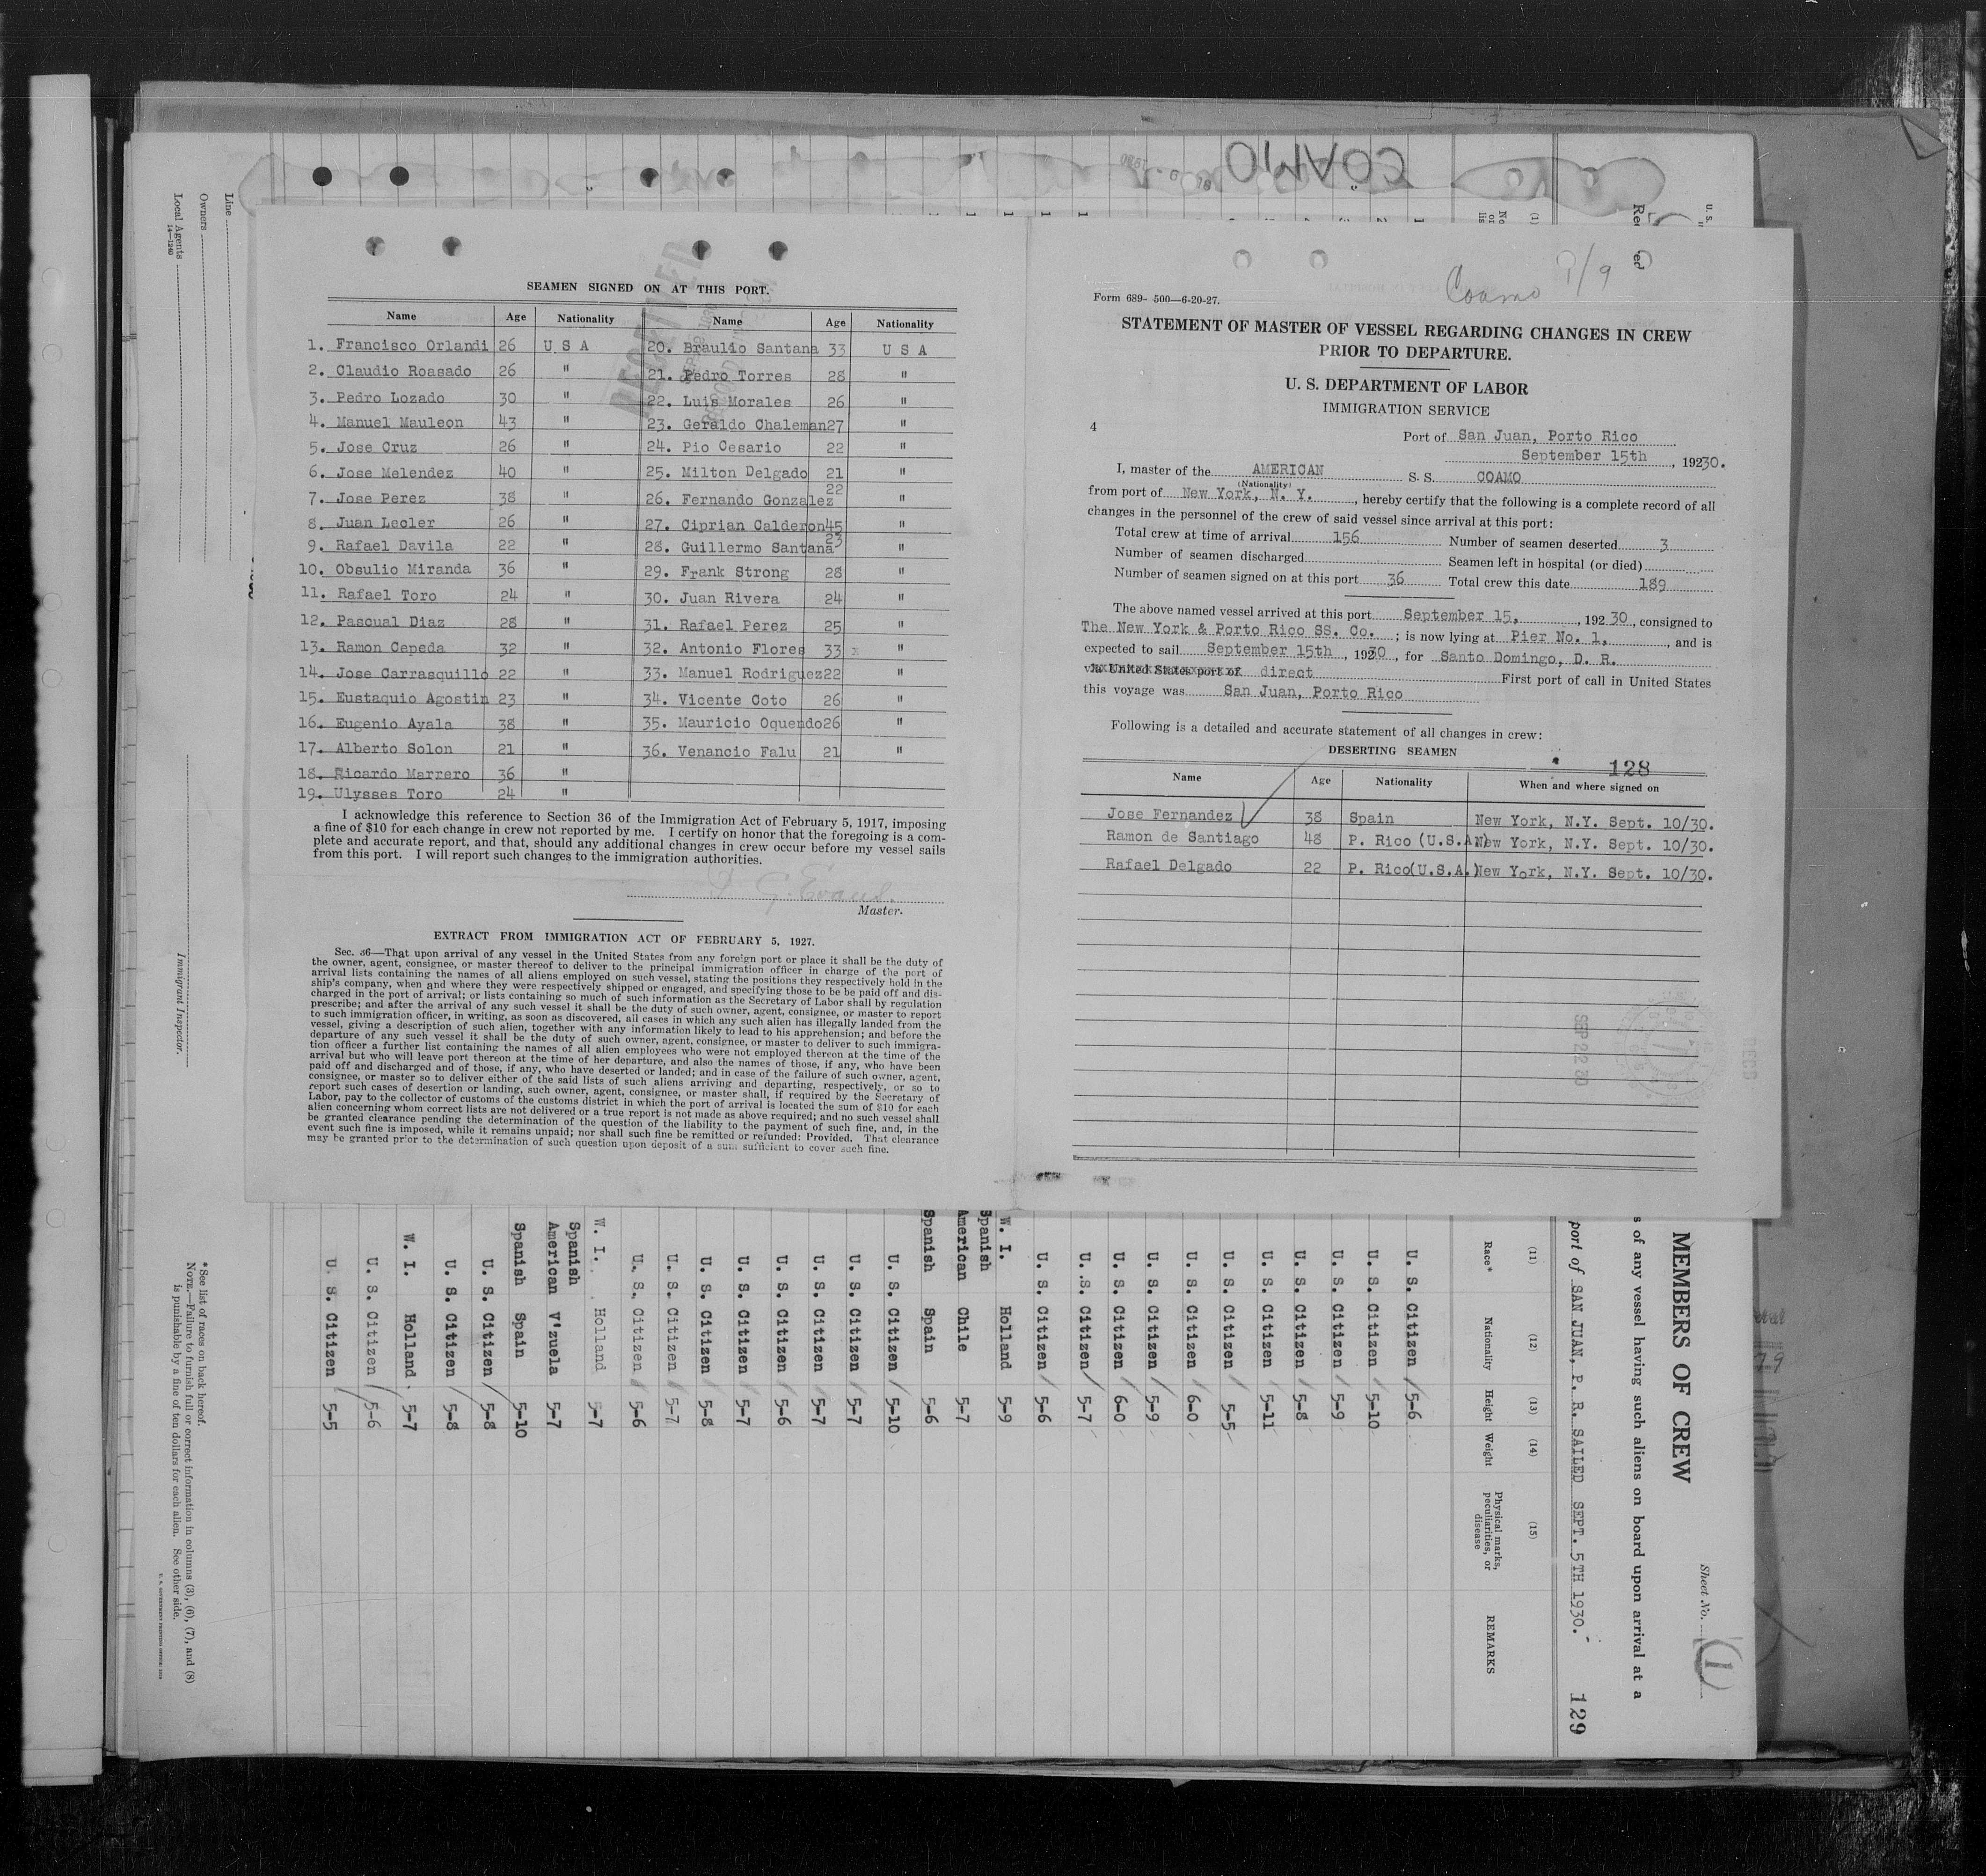 COAMO
SEAMEN SIGNED ON AT THIS PORT.
Name Age Nationality Name Age Nationality
1. Francisco Orlandi 26 U S A 20. Braulio Santana 33 U S A
2. Claudio Roasado 26 " 21. Pedro Torres 28 "
3. Pedro Lozado 30 " 22. Luis Morales 26 "
4. Manuel Mauleon 43 " 23. Geraldo Chaleman 27 "
5. Jose Cruz 26 " 24. Pio Cesario 22 "
6. Jose Melendez 40 " 25. Milton Delgado 21 "
7. Jose Perez 38 " 26. Fernando Gonzalez 22 "
8. Juan Lecler 26 " 27. Ciprian Calderon 45 "
9. Rafael Davila 22 " 28. Guillermo Santana 23 "
10. Obsulio Miranda 36 " 29. Frank Strong 28 "
11. Rafael Toro 24 " 30. Juan Rivera 24 "
12. Pascual Diaz 28 " 31. Rafael Perez 25 "
13. Ramon Cepeda 32 " 32. Antonio Flores 33 x "
14. Jose Carrasquillo 22 " 33. Manuel Rodriguez 22 "
15. Eustaquio Agostin 23 " 34. Vicente Coto 26 "
16. Eugenio Ayala 38 " 35. Mauricio Oquendo 26 "
17. Alberto Solon 21 " 36. Venancio Falu 21 "
18. Ricardo Marrero 36 "
19. Ulysses Toro 24 "
RECEIVED
I acknowledge this reference to Section 36 of the Immigration Act of February 5, 1917, imposing
a fine of $10 for each change in crew not reported by me. I certify on honor that the foregoing is a com-
plete and accurate report, and that, should any additional changes in crew occur before my vessel sails
from this port. I will report such changes to the immigration authorities.
G. Evans.
Master.
EXTRACT FROM IMMIGRATION ACT OF FEBRUARY 5, 1927.
Sec. 36—That upon arrival of any vessel in the United States from any foreign port or place it shall be the duty of
the owner, agent, consignee, or master thereof to deliver to the principal immigration officer in charge of the port of
arrival lists containing the names of all aliens employed on such vessel, stating the positions they respectively hold in the
ship's company, when and where they were respectively shipped or engaged, and specifying those to be be paid off and dis-
charged in the port of arrival; or lists containing so much of such information as the Secretary of Labor shall by regulation
prescribe; and after the arrival of any such vessel it shall be the duty of such owner, agent, consignee, or master to report
to such immigration officer, in writing, as soon as discovered, all cases in which any such alien has illegally landed from the
vessel, giving a description of such alien, together with any information likely to lead to his apprehension; and before the
departure of any such vessel it shall be the duty of such owner, agent, consignee, or master to deliver to such immigra-
tion officer a further list containing the names of all alien employees who were not employed thereon at the time of the
arrival but who will leave port thereon at the time of her departure, and also the names of those, if any, who have been
paid off and discharged and of those, if any, who have deserted or landed; and in case of the failure of such owner, agent,
consignee, or master so to deliver either of the said lists of such aliens arriving and departing, respectively, or so to
report such cases of desertion or landing, such owner, agent, consignee, or master shall, if required by the Secretary of
Labor, pay to the collector of customs of the customs district in which the port of arrival is located the sum of $10 for each
alien concerning whom correct lists are not delivered or a true report is not made as above required; and no such vessel shall
be granted clearance pending the determination of the question of the liability to the payment of such fine, and, in the
event such fine is imposed, while it remains unpaid; nor shall such fine be remitted or refunded: Provided, That clearance
may be granted prior to the determination of such question upon deposit of a sum sufficient to cover such fine.
Coamo 1/9
Form 689- 500—6-20-27.
STATEMENT OF MASTER OF VESSEL REGARDING CHANGES IN CREW
PRIOR TO DEPARTURE.
U. S. DEPARTMENT OF LABOR
IMMIGRATION SERVICE
4
Port of San Juan, Porto Rico
September 15th, 1930.
I, master of the AMERICAN S. S. COAMO
(Nationality)
from port of New York, N. Y., hereby certify that the following is a complete record of all
changes in the personnel of the crew of said vessel since arrival at this port:
Total crew at time of arrival 156 Number of seamen deserted 3
Number of seamen discharged Seamen left in hospital (or died)
Number of seamen signed on at this port 36 Total crew this date 189
The above named vessel arrived at this port September 15, 192 30, consigned to
The New York & Porto Rico SS. Co. ; is now lying at Pier No. 1, and is
expected to sail September 15th, 1930, for Santo Domingo, D. R.
via United States port of direct First port of call in United States
this voyage was San Juan, Porto Rico
Following is a detailed and accurate statement of all changes in crew:
DESERTING SEAMEN
128
Name Age Nationality When and where signed on
Jose Fernandez 38 Spain New York, N.Y. Sept. 10/30.
Ramon de Santiago 48 P. Rico (U.S.A.) New York, N.Y. Sept. 10/30.
Rafael Delgado 22 P. Rico(U.S.A.) New York, N.Y. Sept. 10/30.
SEP 22 30
Line
Owners
Local Agents
14—1240
Immigrant Inspector.
* See list of races on back hereof.
NOTE.—Failure to furnish full or correct information in columns (3), (6), (7), and (8)
is punishable by a fine of ten dollars for each alien. See other side.
MEMBERS OF CREW
Sheet No. 1
s of any vessel having such aliens on board upon arrival at a
port of SAN JUAN, P. R. SAILED SEPT. 5TH 1930.
129
(11) (12) (13) (14) (15)
Race* Nationality Height Weight Physical marks, peculiarities, or disease REMARKS
U. S. Citizen 5-6
U. S. Citizen 5-10
U. S. Citizen 5-9
U. S. Citizen 5-8
U. S. Citizen 5-11
U. S. Citizen 5-5
U. S. Citizen 6-0
U. S. Citizen 5-9
U. S. Citizen 6-0
U. S. Citizen 5-7
U. S. Citizen 5-6
W. I. Holland 5-9
Spanish
American Chile 5-7
Spanish Spain 5-6
U. S. Citizen 5-10
U. S. Citizen 5-7
U. S. Citizen 5-7
U. S. Citizen 5-6
U. S. Citizen 5-7
U. S. Citizen 5-8
U. S. Citizen 5-7
U. S. Citizen 5-6
W. I. Holland 5-7
Spanish
American V'zuela 5-7
Spanish Spain 5-10
U. S. Citizen 5-8
U. S. Citizen 5-8
W. I. Holland 5-7
U. S. Citizen 5-6
U. S. Citizen 5-5